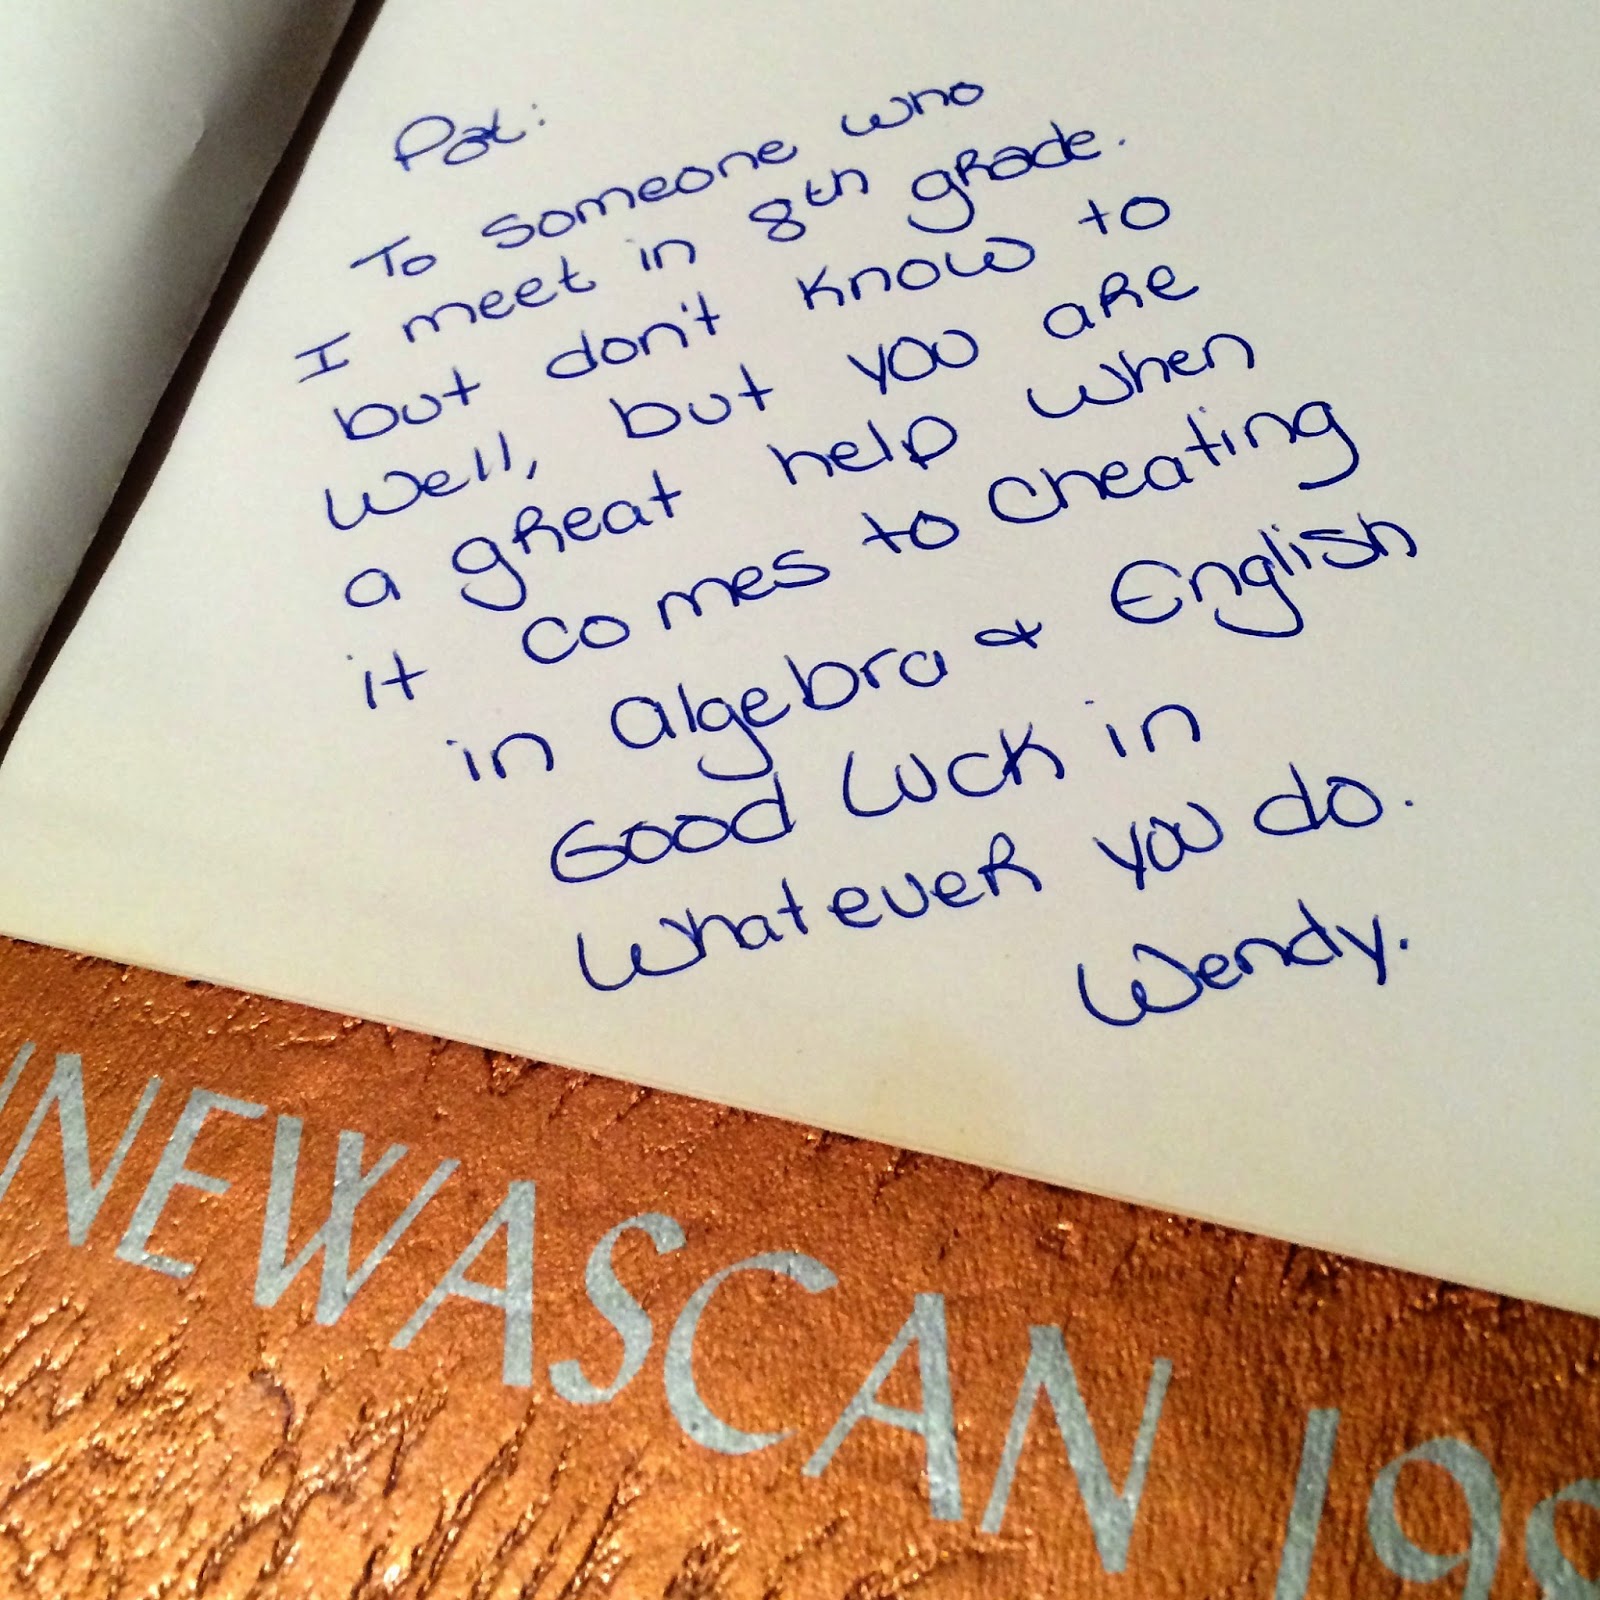 Pat:
To someone who
I meet in 8th grade.
but don't know to
well, but you are
a great help when
it comes to cheating
in algebra & English
Good Luck in
whatever you do.
Wendy.
NEWASCAN 198